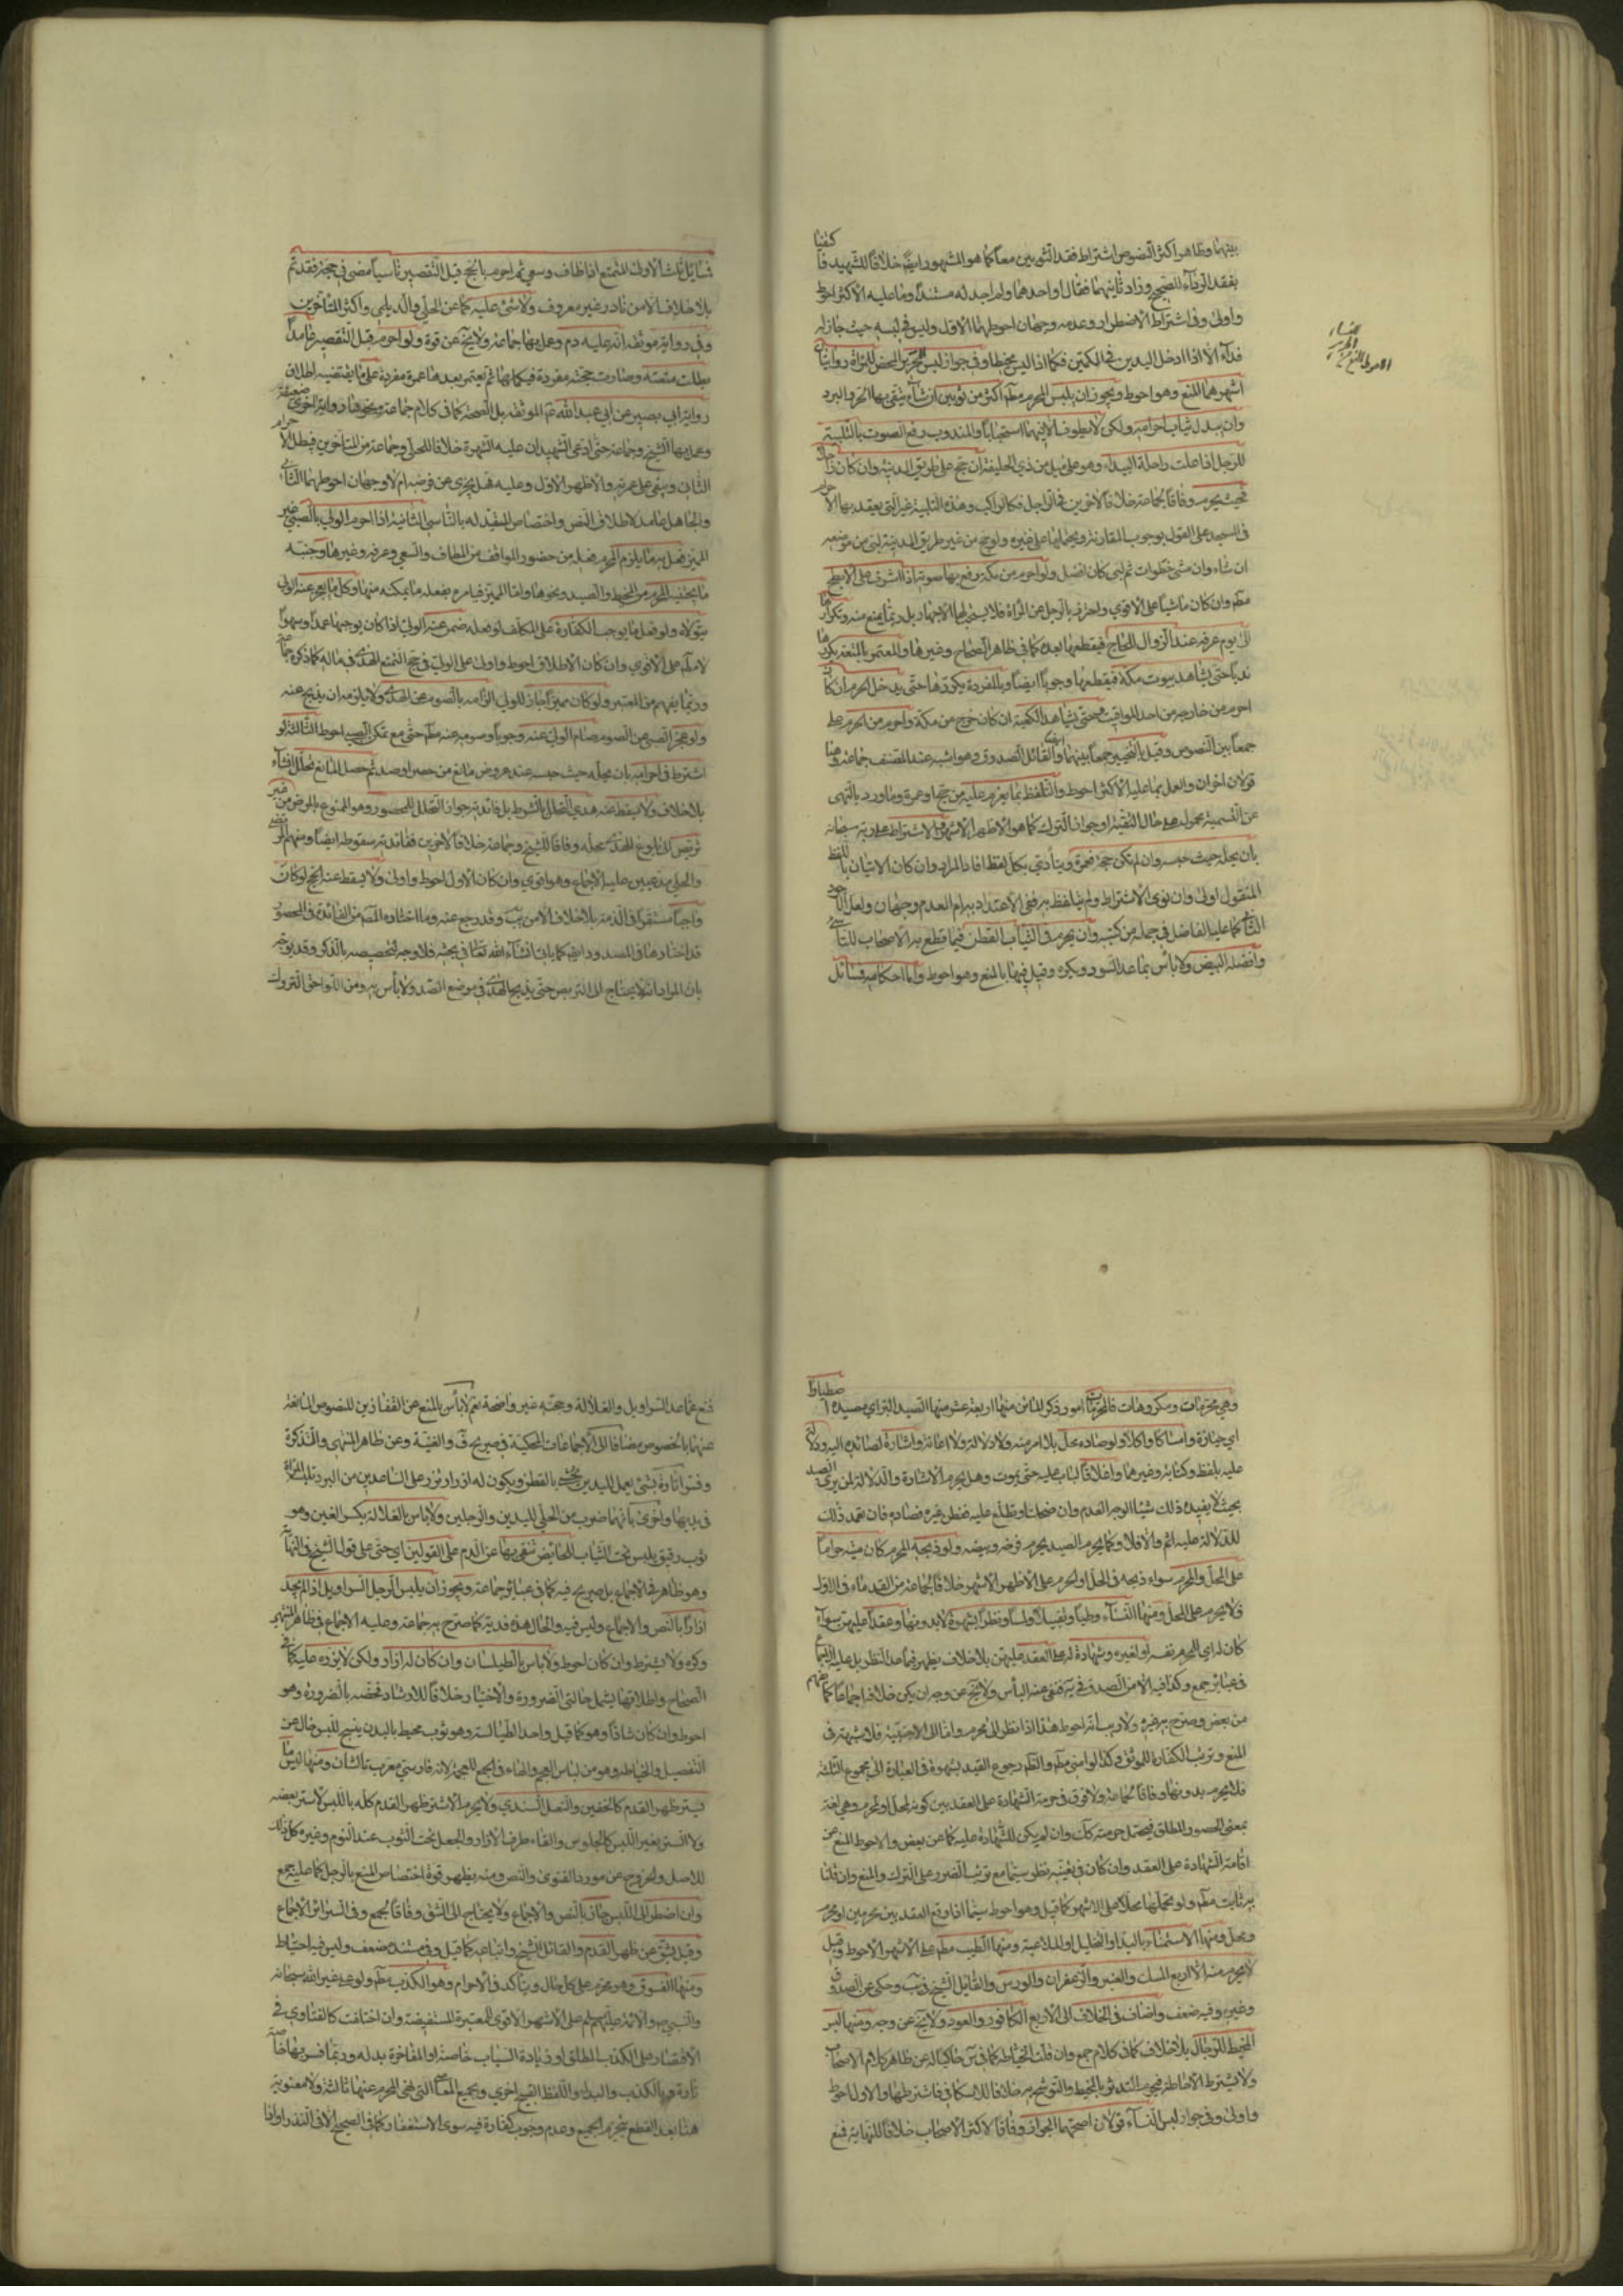 بينهما وظاهر اكثر النصوص اشتراط فقد الثوبين معا كما هو المشهور ايضا خلافا للشهيد فاكتفيا
بفقد الرداء للصحيح وزاد ثانيهما فقال او احدهما ولم اجد له مستندا وما عليه الاكثر احوط
واولى وفي اشتراط الاضطرار وعدمه وجهان احوطهما الاول وليس في لبسه حيث جاز له
فداء الا اذا ادخل اليدين في الكمين فكما اذا لبس مخيطا وفي جواز لبس الحرير المحض للمراة روايتان
اشهرهما المنع وهو احوط ويجوز ان يلبس المحرم مطم اكثر من ثوبين ان شاء يتقي بها الحر والبرد
وان يبدل ثياب احرامه ولكن لا يطوف الا فيهما استحبابا والمندوب رفع الصوت بالتلبية
للرجل اذا علت راحلته البيداء وهو على ميل من ذي الحليفة ان حج على طريق المدينة وان كان راجلا
فحيث يحرم وفاقا لجماعة خلافا لاخرين في الراجل فكالراكب وهذه التلبية غير التي يعقد بها الاحرام
في المسجد على القول بوجوب المقارنة ويحتملها على غيره ولو حج من غير طريق المدينة لبى من موضعه
ان شاء وان مشى خطوات ثم لبى كان افضل ولو احرم من مكة رفع بها صوته اذا اشرف على الابطح
مطم وان كان ماشيا على الاقوى واحترز بالرجل عن المراة فلا يستحب لها الاجهار بل ربما يمنع منه وتكرارها
الى يوم عرفة عند الزوال للحاج فيقطعها بعده كما في ظاهر الصحاح وغيرها وللمعتمر بالمتعة يكررها
ندبا حتى يشاهد بيوت مكة فيقطعها وجوبا ايضا وبالمفردة يكررها حتى يدخل الحرم ان كان
احرم من خارجه من احد المواقيت وحتى يشاهد الكعبة ان كان خرج من مكة واحرم من الحرم على
جمعا بين النصوص وقيل بالتخيير جمعا بينهما ايضا والقائل الصدوق وهو اشبه عند المصنف وجماعة وهنا
قولان اخران والعمل بما عليه الاكثر احوط والتلفظ بما يعزم عليه من حج او عمرة وما ورد بالنهي
عن التسمية محمول على حال التقية او جواز الترك كما هو الاظهر الاشهر والاشتراط على ربه سبحانه
بان يحله حيث حبسه وان لم تكن حجة فعمرة ويتادى بكل لفظ افاد المراد وان كان الاتيان باللفظ
المنقول اولى وان نوى الاشتراط ولم يتلفظ به ففي الاعتداد به ام العدم وجهان ولعل الاجود
الثاني كما عليه الفاضل في جملة من كتبه وان يحرم في الثياب القطن فيما قطع به الاصحاب للتاسي
وافضله البيض ولا باس بما عدا السود ويكره وقيل فيها بالمنع وهو احوط واما احكامه فمسائل
النساء
الحرير
الاحوط المنع
مسائل ثلث الاولى المتمتع اذا طاف وسعى ثم احرم بالحج قبل التقصير ناسيا مضى في حجه فقد تم
بلا خلاف الا من نادر غير معروف ولا شيء عليه كما عن الحلي والديلمي واكثر المتاخرين
وفي رواية موثقة انه عليه دم وعمل بها جماعة ولا يخ عن قوة ولو احرم قبل التقصير عامدا
بطلت متعته وصارت حجته مفردة فيكملها ثم يعتمر بعدها عمرة مفردة على ما يقتضيه اطلاق
رواية ابي بصير عن ابي عبد الله عم الموثقة بل الصحيحة كما في كلام جماعة ونحوها رواية اخرى ضعيفة
وعمل بها الشيخ وجماعة حتى ادعى الشهيدان عليه الشهرة خلافا للحلي وجماعة من المتاخرين فيبطل الاحرام
الثاني ويبقى على عمرته والاظهر الاول وعليه فهل يجزي عن فرضه ام لا وجهان احوطهما الثاني
والجاهل عامد لاطلاق النص واختصاص المقيد له بالناسي الثانية اذا احرم الولي بالصبي غير
المميز فعل به ما يلزم المحرم فعله من حضور المواقف من المطاف والسعي وعرفة وغيرها وجنبه
ما يجتنبه المحرم من المخيط والصيد ونحوها واما المميز فيامره بفعله ما يمكنه منها وكل ما يعجز عنه الولي
يتولاه ولو فعل ما يوجب الكفارة على المكلف لو فعله ضمن عنه الولي اذا كان يوجبها عمدا وسهوا
لا مطم على الاقوى وان كان الاطلاق احوط واولى وعلى الولي في حج التمتع الهدي في ماله كما ذكره جماعة
وربما يفهم من المعتبر ولو كان مميزا جاز للولي الزامه بالصوم عن الهدي ولا يلزمه ان يذبح عنه
ولو عجز الصبي من الصوم صام الولي عنه وجوبا وصومه عنه مطم حتى مع تمكن الصبي احوط الثالثة لو
اشترط في احرامه بان يحله حيث حبسه عند عروض مانع من حصر او صد ثم حصل المانع تحلل انشاء
بلا خلاف ولا يسقط عنه هدي التحلل بالشرط بل فائدته جواز التحلل للمحصور وهو الممنوع بالمرض من غير
تربص الى بلوغ الهدي محله وفاقا للشيخ وجماعة خلافا لاخرين ففائدته سقوطه ايضا ومنهم المرتضى
والحلي مدعيين عليه الاجماع وهو اقوى وان كان الاول احوط واولى ولا يسقط عنه الحج لو كان
واجبا مستقرا في الذمة بلا خلاف الا من يب وقد رجع عنه وما اختاره المصم من الفائدة في المحصور
قد اختارها في المصدود ايضا كما ياتي انشاء الله تعالى في بحثه فلا وجه لتخصيصه بالذكر وقد يوجه
بان المراد انه لا يحتاج الى التربص حتى يذبح الهدي في موضع الصد ولا باس به ومن اللواحق التروك
وهي محرمات ومكروهات فالمحرمات امور ذكر الماتن منها اربعة عشر منها الصيد البري اي مصيده اصطيادا
اي حيازة وامساكا واكلا ولو صاده محل بلا امر منه ولا دلالة ولا اعانة واشارة لصائده اليه ودلالة
عليه بلفظ وكتابة وغيرهما واغلاقا لباب عليه حتى يموت وهل يحرم الاشارة والدلالة لمن يرى الصيد
بحيث لا يفيده ذلك شيئا الوجه العدم وان ضحك او تطلع عليه ففطن غيره فصاده فان تعمد ذلك
للدلالة عليه اثم والا فلا وكما يحرم الصيد يحرم فرخه وبيضه ولو ذبحه المحرم كان ميتة حراما
على المحل والمحرم سواء ذبحه في الحل او الحرم على الاظهر الاشهر خلافا لجماعة من القدماء في الاول
فلا يحرم على المحل ومنها النساء وطيا وتقبيلا ولمسا ونظرا بشهوة لا بدونها وعقدا عليهن سواء
كان له اي للمحرم نفسه او لغيره وشهادة له على العقد عليهن بلا خلاف يظهر فيما عدا النظر بل عليه الاجماع
في عبائر جمع وكذا فيه الا من الصدوق في يه فنفى عنه الباس ولا يخ عن وجه ان لم يكن خلافه اجماعا كما يفهم
من بعض وصرح به غيره ولا ريب انه احوط هذا اذا نظر الى محرمه واما الى الاجنبية فلا شبهة في
المنع وترتب الكفارة للموثق وكذا لو امنى مطم والظم رجوع القيد بشهوة في العبارة الى مجموع الثلثة
فلا يحرم بدونها وفاقا لجماعة ولا فرق في حرمة الشهادة على العقد بين كونه لمحل او محرم وهي لغة
بمعنى الحضور المطلق فيحتمل حرمته كك وان لم يكن للشهادة عليه كما عن بعض والاحوط المنع من
اقامة الشهادة على العقد وان كان في تعينه نظر سيما مع ترتب الضرر على الترك والمنع وان قلنا
به ثابت مطم ولو تحملها محلا على الاشهر كما قيل وهو احوط سيما اذا وقع العقد بين محرمين او محرم
ومحل ومنها الاستمناء باليد او التخييل او الملاعبة ومنها الطيب مطم على الاشهر الاحوط وقيل
لا يحرم منه الا اربع المسك والعنبر والزعفران والورس والقائل الشيخ في يب وحكي عن الصدوق
وغيره وفيه ضعف واضاف في الخلاف الى الاربع الكافور والعود ولا يخ عن وجه ومنها لبس
المخيط للرجال بلا خلاف كما في كلام جمع وان قلت الخياطة كما في س حاكيا له عن ظاهر كلام الاصحاب
ولا يشترط الاحاطة فيحرم التدثر بالمخيط والتوشح به خلافا للاسكافي فاشترطها والاول احوط
واولى وفي جواز لبس النساء قولان اصحهما الجواز وفاقا لاكثر الاصحاب خلافا للنهاية فمنع
فمنع عما عدا السراويل والغلالة وحجته غير واضحة نعم لا باس بالمنع عن القفازين للنصوص المانعة
عنهما بالخصوص مضافا الى الاجماعات المحكية في صريح ف والغنية وعن ظاهر المنتهى والتذكرة
وفسر تارة بشيء يعمل لليدين يحشى بالقطن ويكون له ازرار تزر على الساعدين من البرد تلبسه المراة
في يديها واخرى بانهما ضرب من الحلي لليدين والرجلين ولا باس بالغلالة بكسر الغين وهو
ثوب رقيق يلبس تحت الثياب للحايض تتقي بها عن الدم على القولين اي حتى على قول الشيخ في النهاية
وهو ظاهر في الاجماع بل صريح فيه كما في عبائر جماعة ويجوز ان يلبس الرجل السراويل اذا لم يجد
ازارا بالنص والاجماع وليس فيه والحال هذه فدية كما صرح به جماعة وعليه الاجماع في ظاهر المنتهى
وكره ولا يشترط وان كان احوط ولا باس بالطيلسان وان كان له ازرار ولكن لا يزره عليه كما في
الصحاح واطلاقها يشمل حالتي الضرورة والاختيار خلافا للارشاد فخصه بالضرورة وهو
احوط وان كان شاذا وهو كما قيل واحد الطيالسة وهو ثوب محيط بالبدن ينسج للبس خال عن
التفصيل والخياطة وهو من لباس العجم والهاء في الجمع للعجمة لانه فارسي معرب تالشان ومنها لبس ما
يستر ظهر القدم كالخفين والنعل السندي ولا يحرم الا ستر ظهر القدم كله باللبس لا ستر بعضه
ولا الستر بغير اللبس كالجلوس والقاء طرف الازار والجعل تحت الثوب عند النوم وغيره كل ذلك
للاصل والخروج عن مورد الفتوى والنص ومنه يظهر قوة اختصاص المنع بالرجل كما عليه جمع
وان اضطر الى اللبس جاز بالنص والاجماع ولا يحتاج الى الشق وفاقا لجمع وفي السرائر الاجماع
وقيل يشق عن ظهر القدم والقائل الشيخ واتباعه كما قيل وفي مستنده ضعف وليس فيه احتياط
ومنها الفسوق وهو محرم على كل حال ويتاكد في الاحرام وهو الكذب مطم ولو على غير الله سبحانه
والنبي ص والائمة عليهم السلم على الاشهر الاقوى للمعتبرة المستفيضة وان اختلفت كالفتاوى في
الاقتصار على الكذب المطلق او زيادة السباب خاصة او المفاخرة بدله وربما فسر بها خاصة
تارة وبالكذب والبذاء واللفظ القبيح اخرى وبجميع المعاصي التي نهي المحرم عنها ثالثة ولا معنوية
هنا بعد القطع بتحريم الجميع وعدم وجوب كفارة فيه سوى الاستغفار كما في الصحيح الا في النذر او اذا